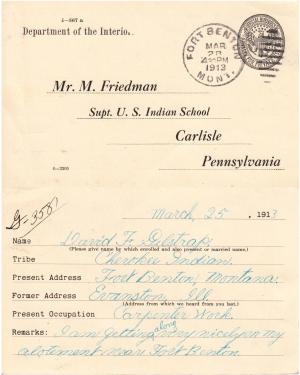 5-887 a
Department of the Interior.
FORT BENTON
MAR
28
4-PM
1913
MONT.
Mr. M. Friedman
Supt. U. S. Indian School
Carlisle
Pennsylvania
6-2205
March, 25, 1913
Name David F. Gilstrap,
(Please give name by which enrolled and also present or married name.)
Tribe Cherokee Indian.
Present Address Fort Benton, Montana.
Former Address Evanston, Ill.
(Address from which we heard from you last.)
Present Occupation Carpenter Work.
Remarks: I am getting along very nicely on my
alotement near Fort Benton.